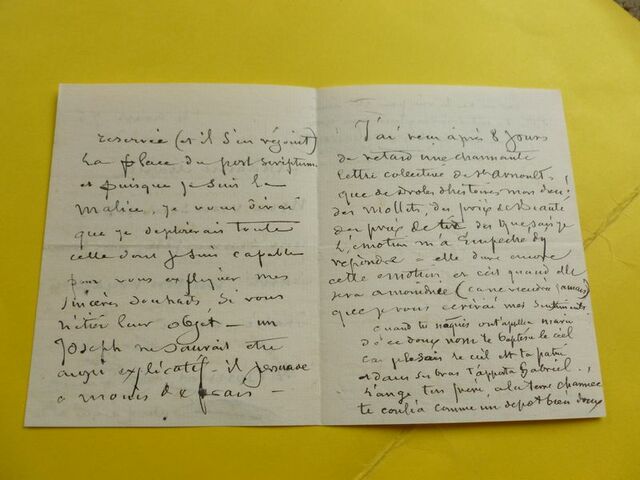 réservée (et il s'en réjouit)
la place du post scriptum
et puisque je suis la
malice, je vous dirai
que je déploierais toute
celle dont je suis capable
pour vous expliquer mes
sincères souhaits si vous
n'étiez leur objet — un
Joseph ne saurait être
aussi explicatif — il
à moins de frais —
J'ai reçu après 8 jours
de retard une charmante
lettre collective de
que de drôles d'histoires mon dieu!
des mollets, des prix de Beauté
des prix de tir, des que sais-je
L'émotion m'a empêché d'y
répondre — elle dure encore
cette émotion et c'est quand elle
sera amoindrie (ça ne viendra jamais)
que je vous écrirai mes sentiments.
quand tu naquis on t'appella
de ce doux nom te baptisa le ciel
Car le ciel est ta patrie
et dans ses bras t'apporta Gabriel.
L'ange, ton père, à la terre charmée
te confia comme un dépôt bien doux